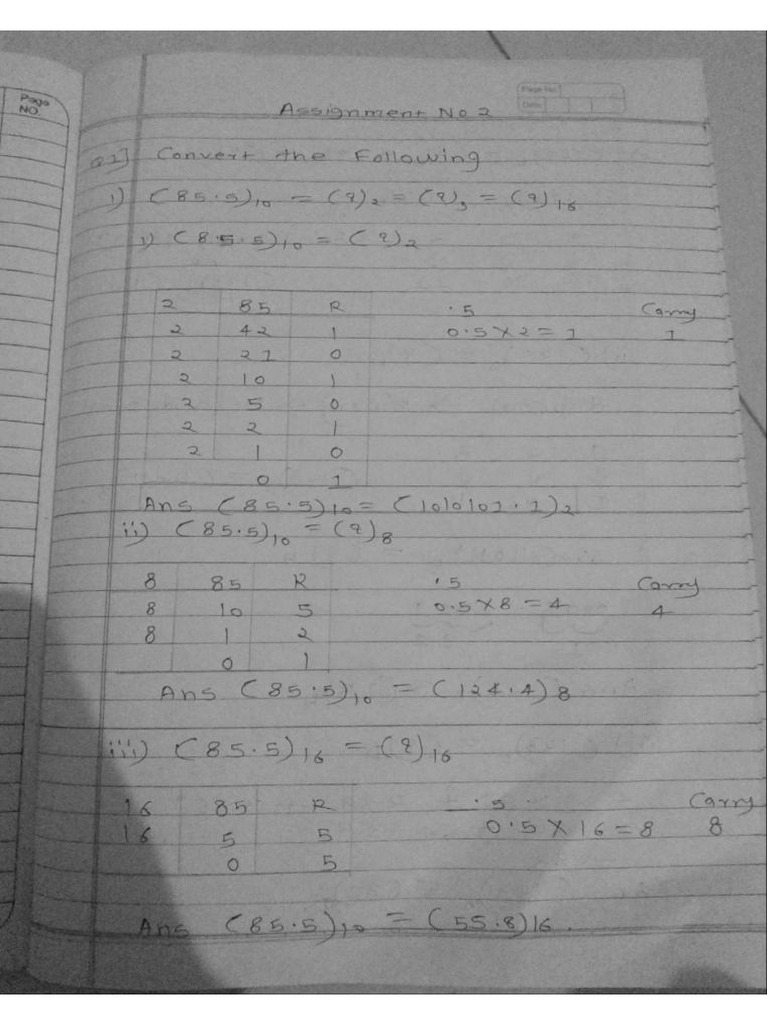 Page
NO.
Page No:
Date:
Assignment No 2
Q1] Convert the Following
1) (85.5)10 = (?)2 = (?)8 = (?)16
i) (8.5.5)10 = (?)2
2 85 R .5 Carry
2 42 1 0.5×2 = 1 1
2 21 0
2 10 1
2 5 0
2 2 1
2 1 0
0 1
Ans (85.5)10 = (1010101.1)2
ii) (85.5)10 = (?)8
8 85 R .5 Carry
8 10 5 0.5×8 = 4 4
8 1 2
0 1
Ans (85.5)10 = (124.4)8
iii) (85.5)16 = (?)16
16 85 R .5 Carry
16 5 5 0.5 × 16 = 8 8
0 5
Ans (85.5)10 = (55.8)16.